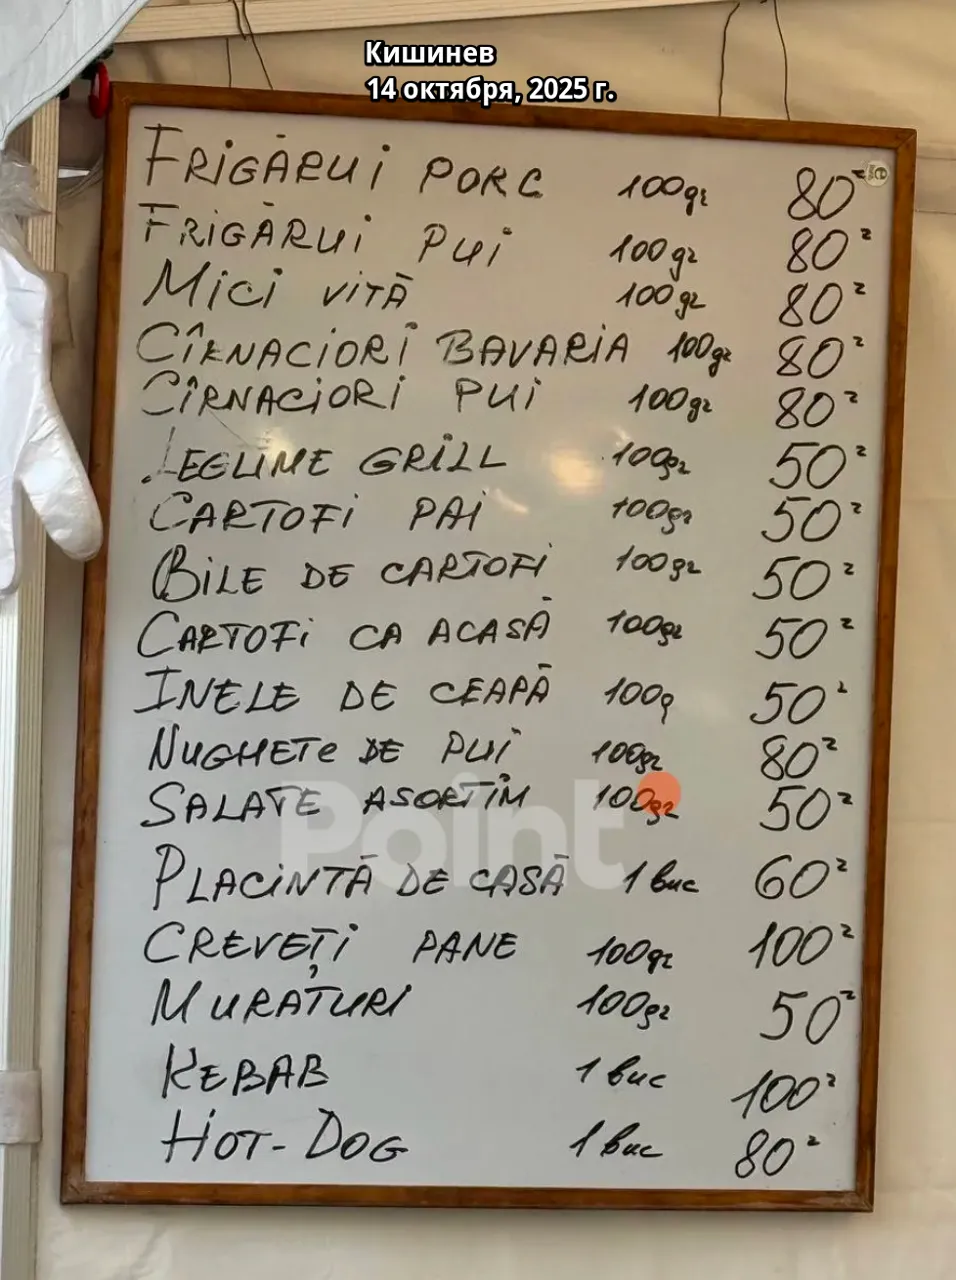 Кишинев
14 октября, 2025 г.
FRIGĂRUI PORC 100gr 80
FRIGĂRUI PUI 100gr 80
MICI VITĂ 100gr 80
CÎRNACIORI BAVARIA 100gr 80
CÎRNACIORI PUI 100gr 80
LEGUME GRILL 100gr 50
CARTOFI PAI 100gr 50
BILE DE CARTOFI 100gr 50
CARTOFI CA ACASĂ 100gr 50
INELE DE CEAPĂ 100g 50
NUGHETe DE PUI 100gr 80
SALATE ASORTIM 100gr 50
Point
PLACINTĂ DE CASĂ 1 buc 60
CREVEȚI PANE 100gr 100
MURATURI 100gr 50
KEBAB 1 buc 100
HOT-DOG 1 buc 80